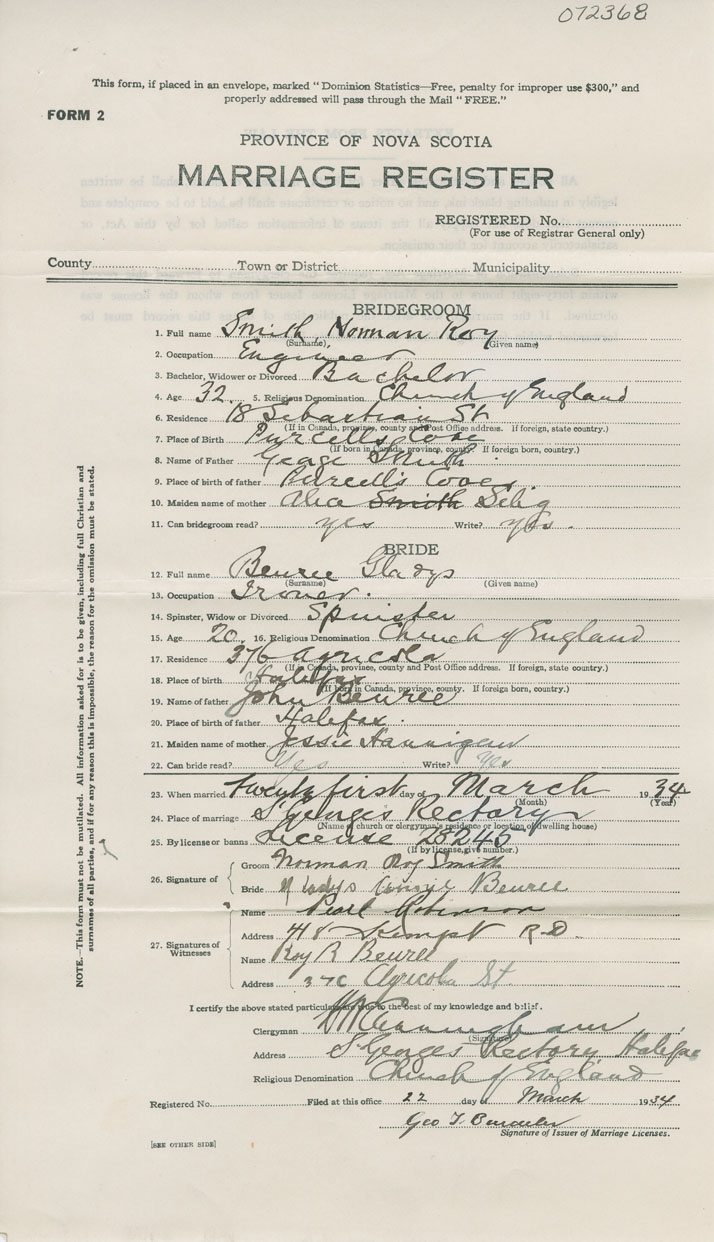 072368
This form, if placed in an envelope, marked "Dominion Statistics—Free, penalty for improper use $300," and
properly addressed will pass through the Mail "FREE."
FORM 2
PROVINCE OF NOVA SCOTIA
MARRIAGE REGISTER
REGISTERED No.
(For use of Registrar General only)
County Town or District Municipality
BRIDEGROOM
1. Full name Smith Norman Roy
(Surname) (Given name)
2. Occupation Engineer
3. Bachelor, Widower or Divorced Bachelor
4. Age 32. 5. Religious Denomination Church of England
6. Residence 18 Sebastian St.
(If in Canada, province, county and Post Office address. If foreign, state country.)
7. Place of Birth Purcells Cove
(If born in Canada, province, county. If foreign born, country.)
8. Name of Father George Smith
9. Place of birth of father Purcell's Cove
10. Maiden name of mother Smith Selig
11. Can bridegroom read? yes Write? yes.
BRIDE
12. Full name Beuree Gladys
(Surname) (Given name)
13. Occupation Ironer.
14. Spinster, Widow or Divorced Spinster
15. Age 20. 16. Religious Denomination Church of England
17. Residence 376 Agricola
(If in Canada, province, county and Post Office address. If foreign, state country.)
18. Place of birth Halifax
(If born in Canada, province, county. If foreign born, country.)
19. Name of father John Beuree
20. Place of birth of father Halifax.
21. Maiden name of mother Jessie Hannigan
22. Can bride read? Yes Write? Yes
23. When married twenty first day of March 1934
(Month) (Year)
24. Place of marriage St Georges Rectory
(Name of church or clergyman's residence or location of dwelling house)
25. By license or banns License 28245
(If by license, give number.)
26. Signature of
Groom Norman Roy Smith
Bride Gladys Beuree
27. Signatures of
Witnesses
Name Pearl Robinson
Address 418 Kempt R-D
Name Roy R Beuree
Address 376 Agricola St.
I certify the above stated particulars are true to the best of my knowledge and belief.
Clergyman Cunningham
(Signature)
Address St Georges Rectory Halifax
Religious Denomination Church of England
Registered No. Filed at this office 22 day of March 1934
Geo T
Signature of Issuer of Marriage Licenses.
[SEE OTHER SIDE]
NOTE.—This form must not be mutilated. All information asked for is to be given, including full Christian and
surnames of all parties, and if for any reason this is impossible, the reason for the omission must be stated.